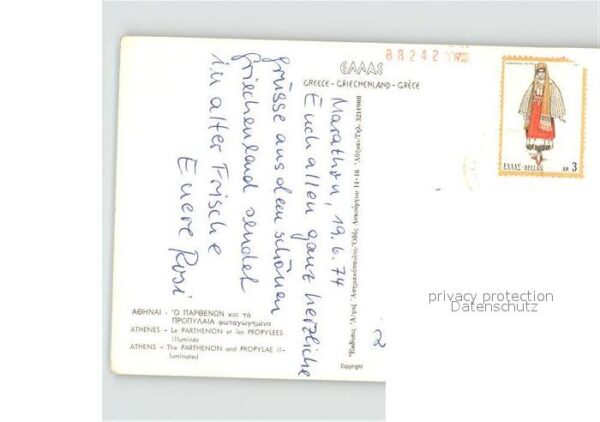 88242
ΕΛΛΑΣ
GREECE - GRIECHENLAND - GRÈCE
ΕΛΛΑΣ-HELLAS ΔΡ 3
Marathon, 19.6.74
Euch allen ganz herzliche
Grüsse aus dem schönen
Griechenland sendet
in alter Frische
Euere Rosi
ΑΘΗΝΑΙ - Ὁ ΠΑΡΘΕΝΩΝ καὶ τὰ
ΠΡΟΠΥΛΑΙΑ φωταγωγημένα
ATHENES - Le PARTHENON et les PROPYLEES
illuminés
ATHENS - The PARTHENON and PROPYLAE il-
luminated
Copyright
2
privacy protection
Datenschutz